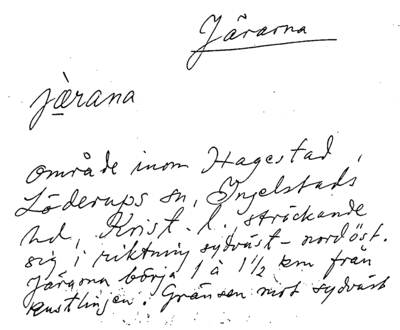 Järarna
jæ̀rana
område inom Hagestad,
Löderups sn, Ingelstads
hd, Krist. l., sträckande
sig i riktning sydväst-nordöst.
Järarna börja 1 à 1 1/2 km från
kustlinjen. Gränsen mot sydväst